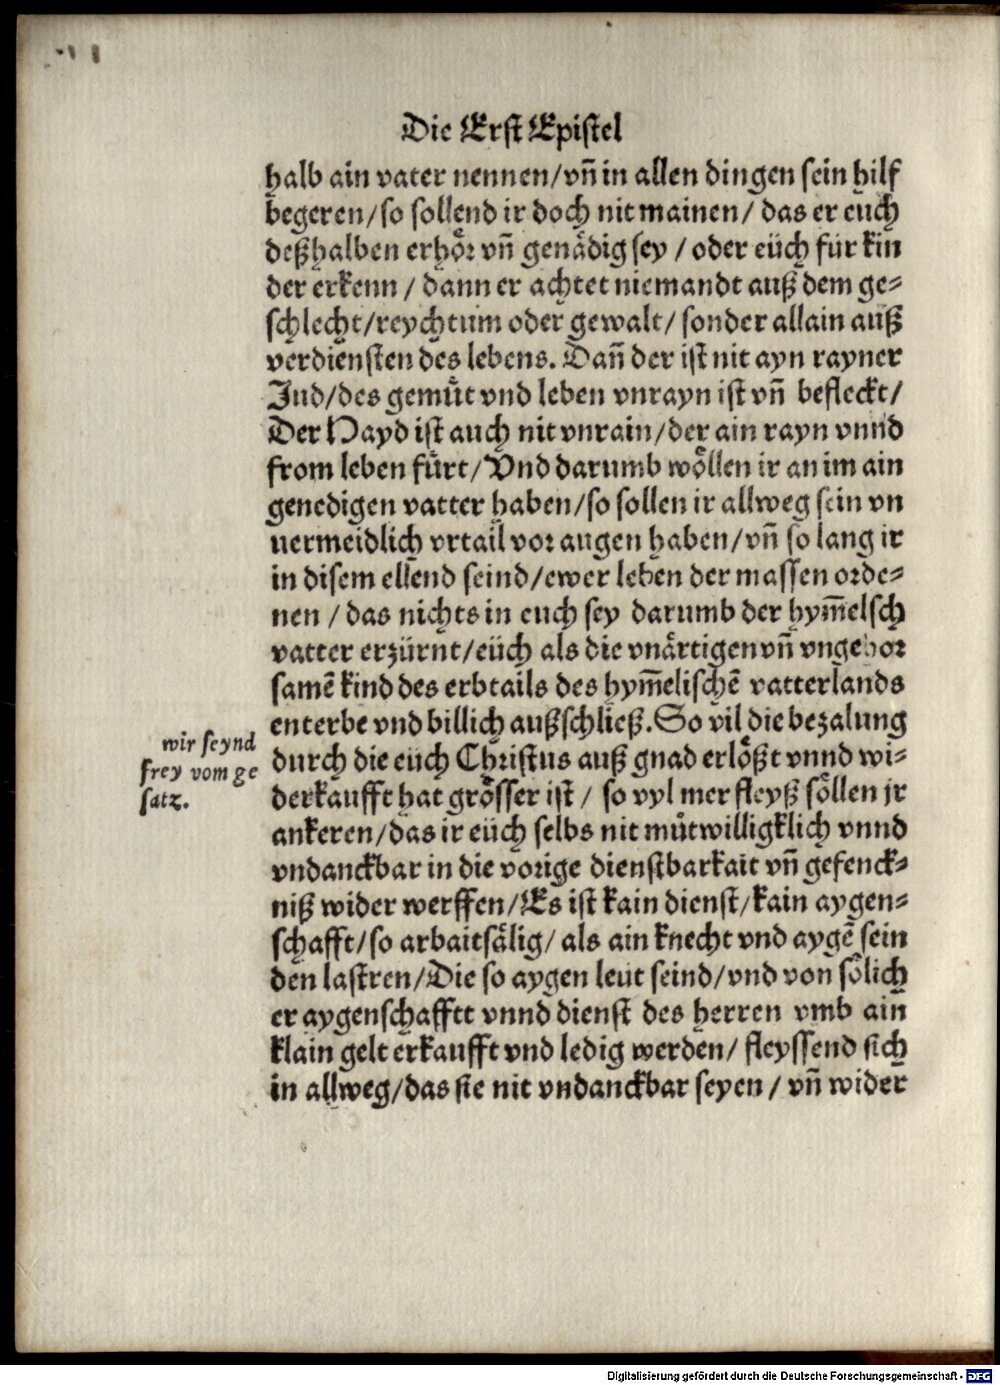 Die Erst Epistel
halb ain vater nennen/vñ in allen dingen sein hilf
begeren/so sollend ir doch nit mainen/ das er euch
deßhalben erhoͤr vñ genaͤdig sey / oder eüch für kin
der erkenn / dann er achtet niemandt auß dem ge-
schlecht/reychtum oder gewalt/ sonder allain auß
verdiensten des lebens. Dañ der ist nit ayn rayner
Jud/des gemuͤt vnd leben vnrayn ist vñ befleckt/
Der Hayd ist auch nit vnrain/der ain rayn vnnd
from leben fuͤrt/Vnd darumb woͤllen ir an im ain
genedigen vatter haben/so sollen ir allweg sein vn
uermeidlich vrtail vor augen haben/vñ so lang ir
in disem ellend seind/ewer leben der massen orde-
nen / das nichts in euch sey darumb der hym̄elsch
vatter erzürnt/eüch als die vnaͤrtigen vñ vngehor
samē kind des erbtails des hym̄elischē vatterlands
enterbe vnd billich außschließ. So vil die bezalung
durch die euch Christus auß gnad erloͤßt vnnd wi-
derkaufft hat groͤsser ist / so vyl mer fleyß soͤllen jr
ankeren/das ir eüch selbs nit muͤtwilligklich vnnd
vndanckbar in die vorige dienstbarkait vñ gefenck-
niß wider werffen/Es ist kain dienst/kain aygen-
schafft/so arbaitsaͤlig/ als ain knecht vnd aygē sein
den lastren/Die so aygen leut seind/vnd von soͤlich
er aygenschafftt vnnd dienst des herren vmb ain
klain gelt erkaufft vnd ledig werden/ fleyssend sich
in allweg/das sie nit vndanckbar seyen / vñ wider
wir seynd
frey vom ge
satz.
Digitalisierung gefördert durch die Deutsche Forschungsgemeinschaft - DFG